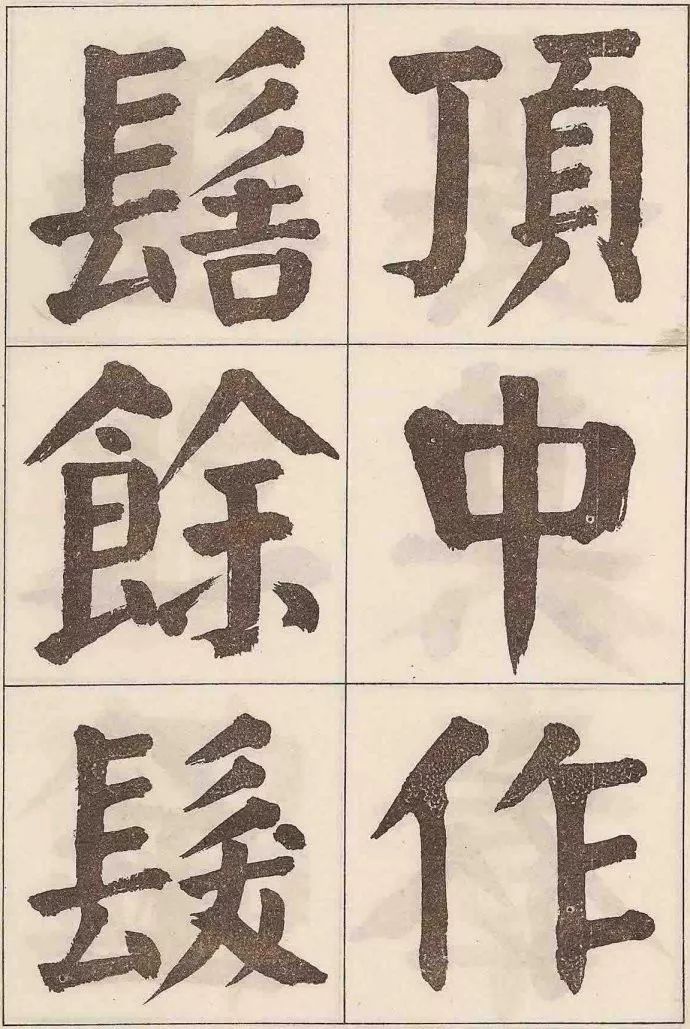 頂中作
髻餘髮